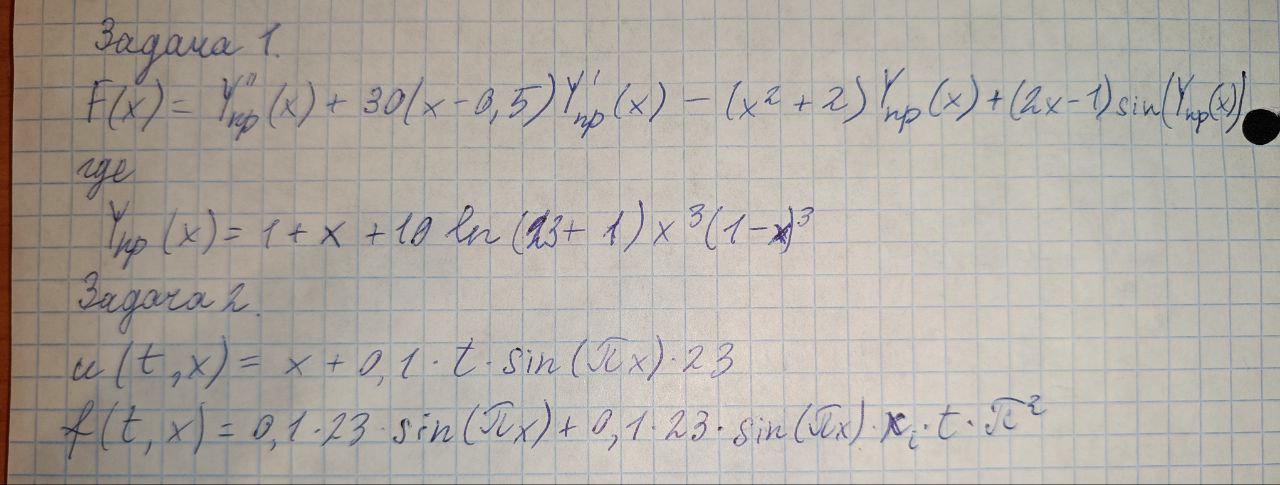 Задача 1.
F(x) = Y''пр(x) + 30(x - 0,5)Y'пр(x) - (x² + 2)Yпр(x) + (2x - 1)sin(Yпр(x))
где
Yпр(x) = 1 + x + 10 ln(23 + 1)x³(1 - x)³
Задача 2.
u(t, x) = x + 0,1 · t · sin(πx) · 23
f(t, x) = 0,1 · 23 · sin(πx) + 0,1 · 23 · sin(πx) · κᵢ · t · π²